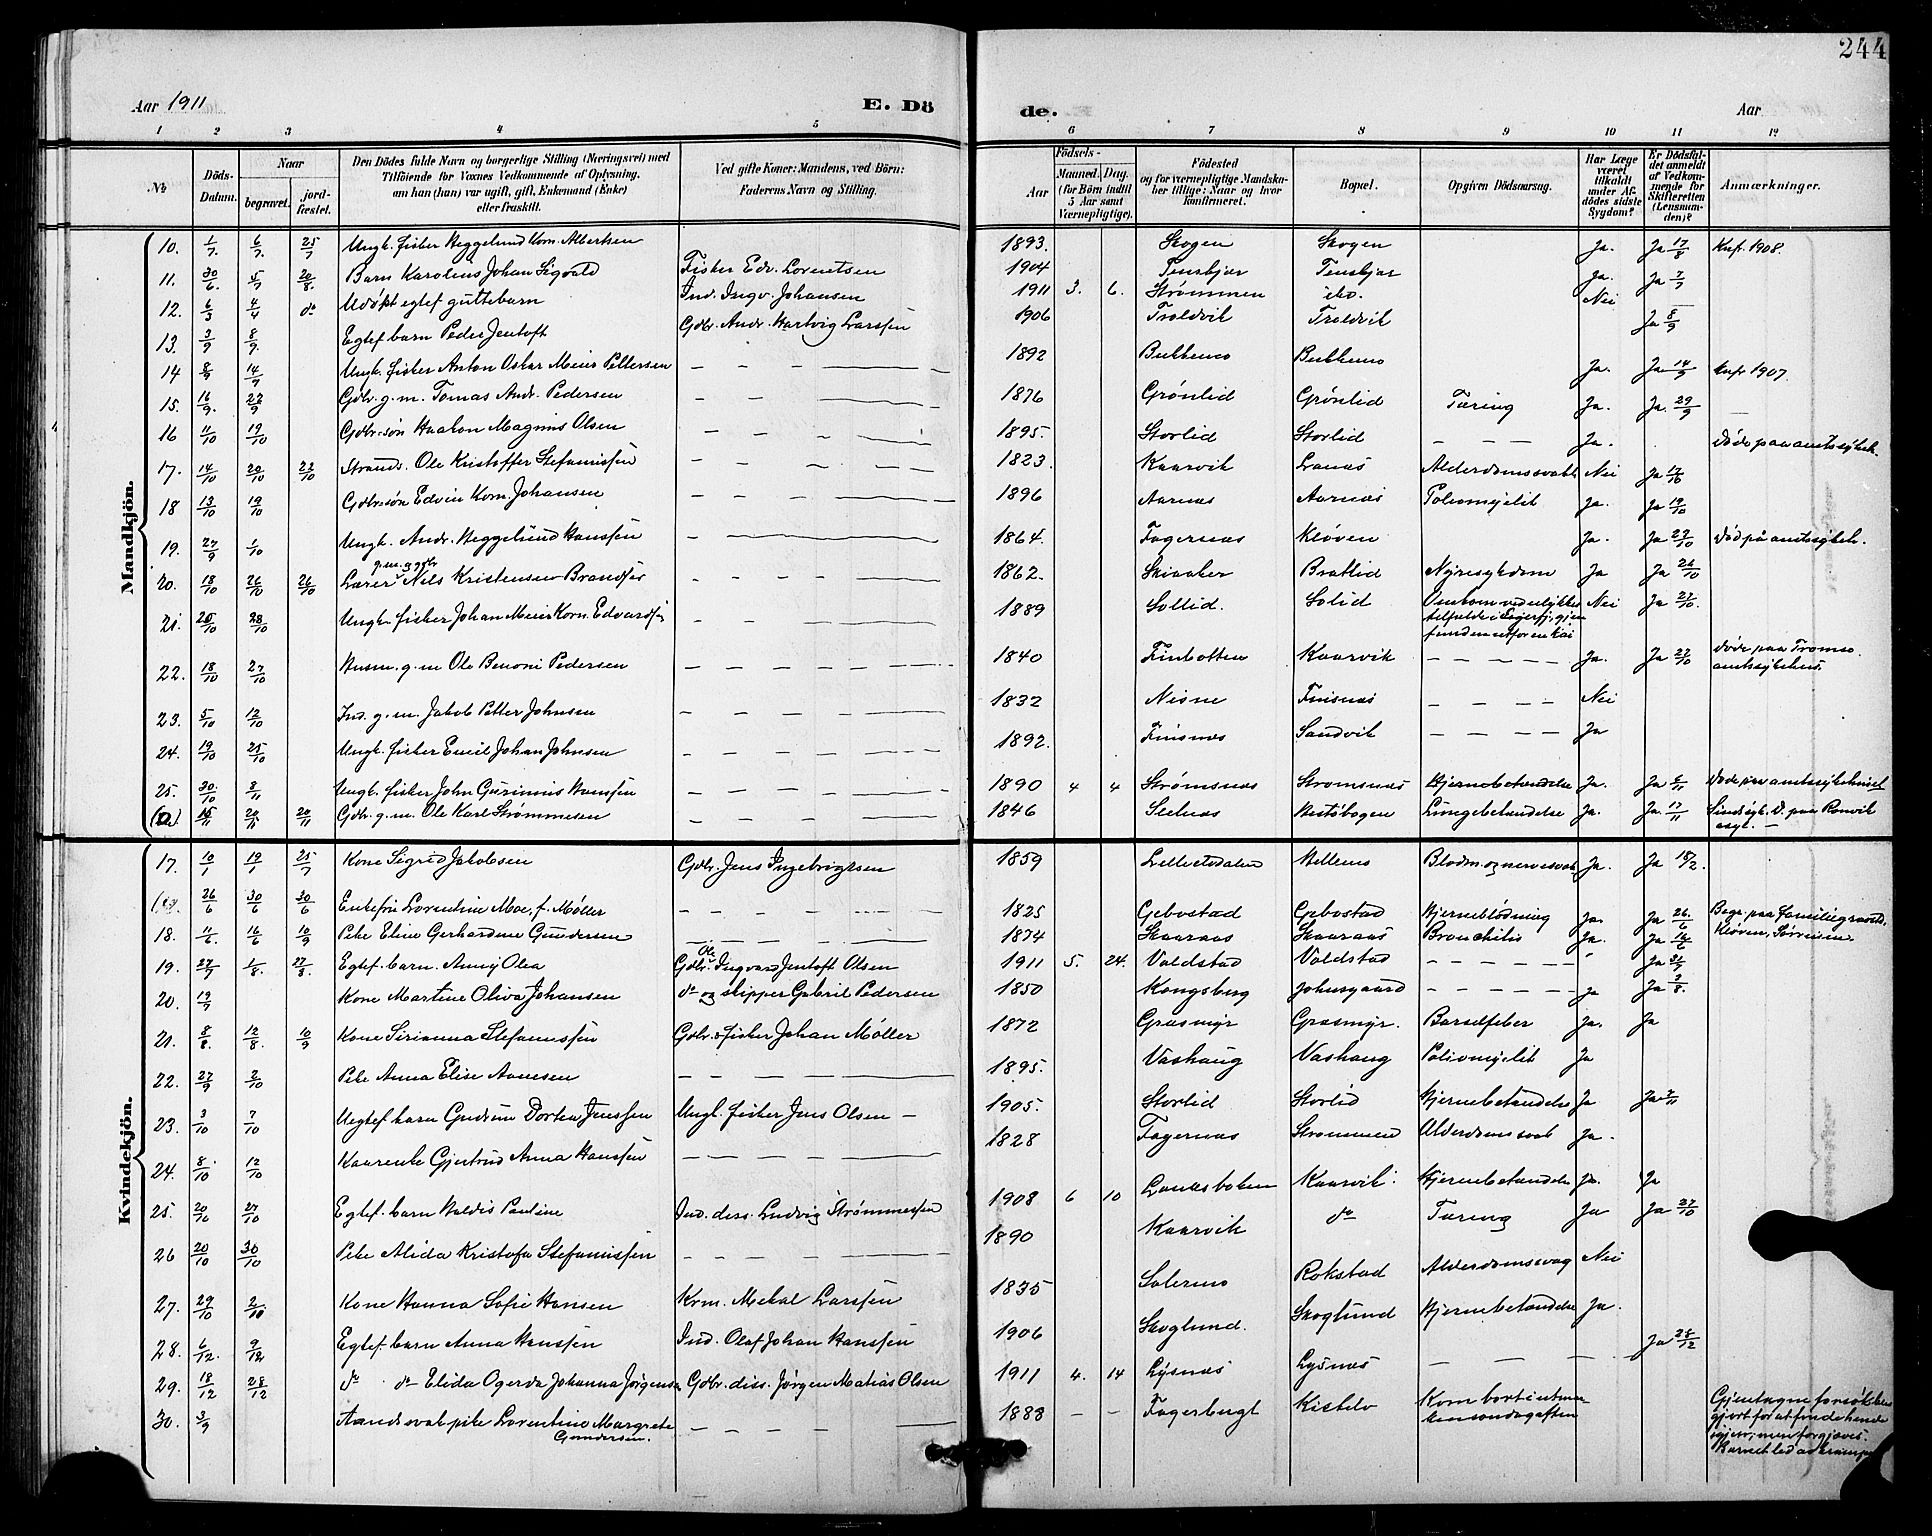 244
Aar 1911 E. Dö de. Aar
1 2 3 4 5 6 7 8 9 10 11 12
No Döds-Datum. Naar begravet. jordfæstet. Den Dödes fulde Navn og borgerlige Stilling (Næringsvei) med Tilföiende for Voxnes Vedkommende af Oplysning, om han (hun) var ugift, gift, Enkemand (Enke) eller fraskilt. Ved gifte Koner: Mandens, ved Börn: Faderens Navn og Stilling. Födsels- Aar Maaned. Dag. (for Börn indtil 5 Aar samt Værnepligtige). Födested og for værnepligtige Mandskaber tillige: Naar og hvor konfirmeret. Bopæl. Opgiven Dödsaarsag. Har Læge været tilkaldt under Afdödes sidste Sygdom? Er Dödsfaldet anmeldt af Vedkommende for Skifteretten (Lensmanden)? Anmærkninger.
Mandkjön.
10. 1/7 6/7 25/7 Ungk. fisker Heggelund Korn. Albertsen 1893. Skogen Skogen Ja. Ja 17/8 Knf. 1908.
11. 30/6 5/7 20/8 Barn Karolens Johan Sigvald Fisker Edv. Lorentsen 1904 Tenskjær Tenskjær Ja. Ja 7/7
12. 6/3 4/4 do Udøpt egtef guttebarn Ind. Ingv. Johansen 1911 3. 6. Strømmen do. Nei
13. 3/9 8/9. Egtef barn Peder Jentoft Gdbr. Andr. Hartvig Larssen 1906 Troldvik Troldvik Ja 8/9
14 8/9 14/9 Ungk. fisker Anton Oskar Meier Pettersen 1892 Bukkemo Bukkemo Ja. Ja 14/9 Knf. 1907.
15. 16/9. 22/9 Gdbr. g.m. Tomas Andr. Pedersen 1876 Grønlid Grønlid Tæring Ja. Ja. 29/9
16 11/10 19/10 Gdbr. søn Haakon Magnus Olsen 1895. Storlid Storlid Ja. Døde paa amtssykeh.
17. 14/10 20/10 22/10 Strands. Ole Kristoffer Stefanussen 1823. Kaarvik Lanæs Alderdomssvakh Nei Ja 17/10
18 13/10 19/10 Gdbr. søn Edvin Korn. Johansen 1896 Aarnæs Aarnæs Poliomyelit Ja. Ja 19/10
19. 27/9 1/10 Ungk. Andr. Heggelund Hanssen 1864. Fagernæs Kløven Ja. Ja 27/10 Død på amtssykeh.
20. 18/10 26/10 26/10 Lærer g.m. Nils Kristensen Brandser 1862. Skiaaker Bratlid Nyresykdom Ja Ja 26/10
21. 25/10 28/10 Ungk. fisker Johan Meier Korn. Edvardsen 1889 Sollid. Solid Omkom ved ulykkes tilfælde i Nei Ja 27/10.
22. 18/10 27/10 Husm. g.m. Ole Benoni Pedersen 1840 Finbotten Kaarvik Ja. Ja 27/10 Døde paa Tromsø amtssykehus.
23. 5/10 12/10 Ind. g.m. Jakob Petter Johnsen 1832 Nesne Finsnæs Nei
24. 19/10 25/10 Ungk. fisker Emil Johan Johnsen 1892. Finsnæs Sandvik Ja
25. 30/10 8/11 Ungk. fisker John Hansen 1890 4 4 Strømsnæs Strømsnæs Hjernebetændelse Ja. Ja 8/11 Døde paa amtssykehuset
15/11 20/11 20/11 Gdbr. g.m. Ole Karl Strømmesen 1846 Selnæs Hestbogen Lungebetændelse Ja. Ja. 17/11 Sindssyk. D. paa Rønvik asyl.
Kvindekjön.
17. 10/1 19/1 25/7 Kone Sigrid Jakobsen Gdbr. Jens Ingebrigtsen 1859 Hellemo Blodm. og nervesvak Ja. Ja 18/2.
26/6 30/6 30/6 Enkefru Lorentine Moe, f. Møller 1825 Gebostad Gebostad Hjerneblødning Ja. Ja 26/6 Begr. paa familiegravst. Kløven, Sørreisen.
18. 11/6. 16/6 10/9 Pike Eline Gerhardine Gundersen 1874 Skaaraas Skaaraas Bronchitis Ja. Ja 16/6
19. 27/7 1/8. 27/8. Egtef. barn. Anny Olea Gdbr. Ole Ingvard Jentoft Olsen 1911 5. 24. Valdstad Valdstad Ja 31/7
20. 19/7 Kone Martine Oliva Johansen do og skipper Gabriel Pedersen 1850 Kongsberg Johnsgaard Ja Ja 3/8.
21. 8/8. 12/8. 10/9 Kone Sirianna Stefanussen Gdbr. & fisker Johan Møller 1872 Græsmyr Græsmyr. Barselfeber Ja. Ja
22. 27/9 2/10 Pike Anna Elise Aanesen 1895. Vashaug Vashaug Poliomyelit Ja
23. 3/10 7/10 Uegtef barn Gudrun Dortea Jenssen Ungk. fisker Jens Olsen 1905. Storlid Storlid Hjernebetændelse Ja Ja 2/11
24. 8/10 12/10 Kaarenke Gjertrud Anna Hanssen 1828 Fagernæs Strømmen Alderdomssvak Ja.
25. 20/10 27/10 Egtef. barn Haldis Pauline Ind. diss. Ludvig Strømmessen 1908 6 10 Lanæsboten Kaarvik. Hjernebetændelse Ja. Ja
26 20/10 30/10 Pike Alida Kristofa Stefanussen 1890 Kaarvik do Tæring Ja Ja 27/10
27. 29/10 2/10 Kone Hanna Sofie Hansen Krm. Mekal Larssen 1835 Salermo Rokstad Alderdomssvag Nei
28. 6/12. 9/12 Egtef. barn Anna Hanssen Ind. Olaf Johan Hanssen 1906 Skoglund. Skoglund Hjernebetændelse Ja.
29. 18/12 28/12 do do Elida Ogerda Johanna Jørgensen Gdbr. diss. Jørgen Matias Olsen 1911 4. 14 Lysnæs Lysnæs Ja 28/12
30. 3/9 Aandssvak pike Lorentine Margrete Gundersen. 1883 Fagerbugt Kistelv Kom bort i utmarken søndagaften Gjentagne forsøk blev gjort for at finde hende igjen; men forgjæves. Barnet led av krampe